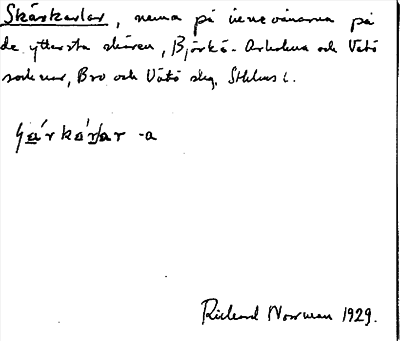 Skärkarlar, namn på invånarna på
de yttersta skären, Björkö-Arholma och Vätö
socknar, Bro och Vätö skg, Sthlms l.
-a
Richard Norrman 1929.